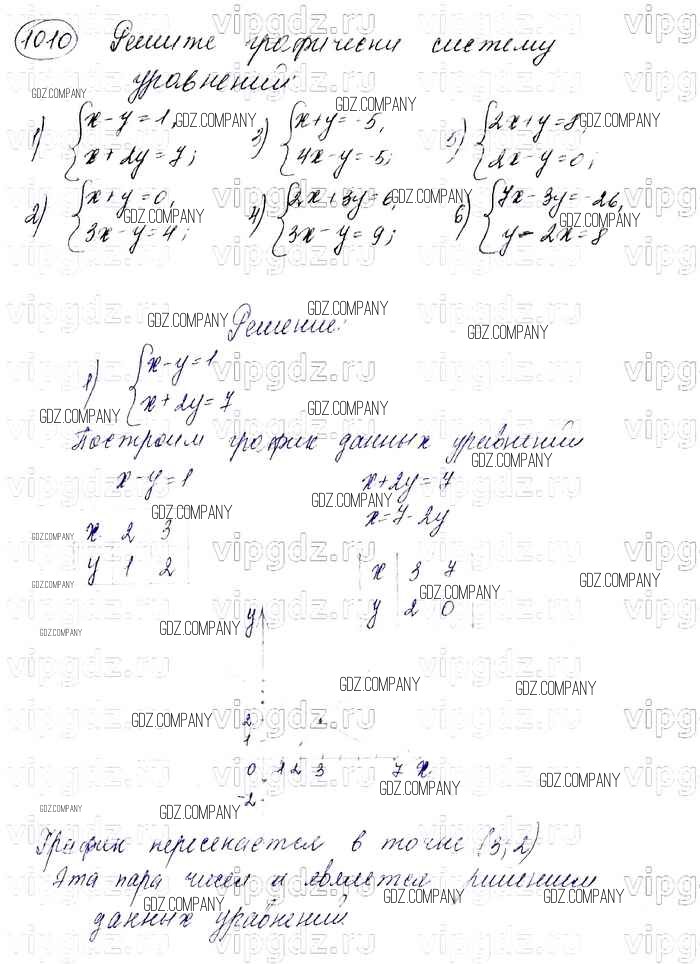 1010 Решите графически систему
уравнений:
1) { x-y=1, 3) { x+y=-5, 5) { 2x+y=8,
x+2y=7; 4x-y=-5; 2x-y=0;
2) { x+y=0, 4) { 2x+3y=6, 6) { 7x-3y=-26,
3x-y=4; 3x-y=9; y-2x=8
Решение:
1) { x-y=1
x+2y=7
Построим график данных уравнений
x-y=1 x+2y=7
x=7-2y
x 2 3
y 1 2
x 3 7
y 2 0
y
2
1
0 1 2 3 7 x
-2
График пересекается в точке (3;2)
Эта пара чисел и является решением
данных уравнений.
GDZ.COMPANY
vipgdz.ru